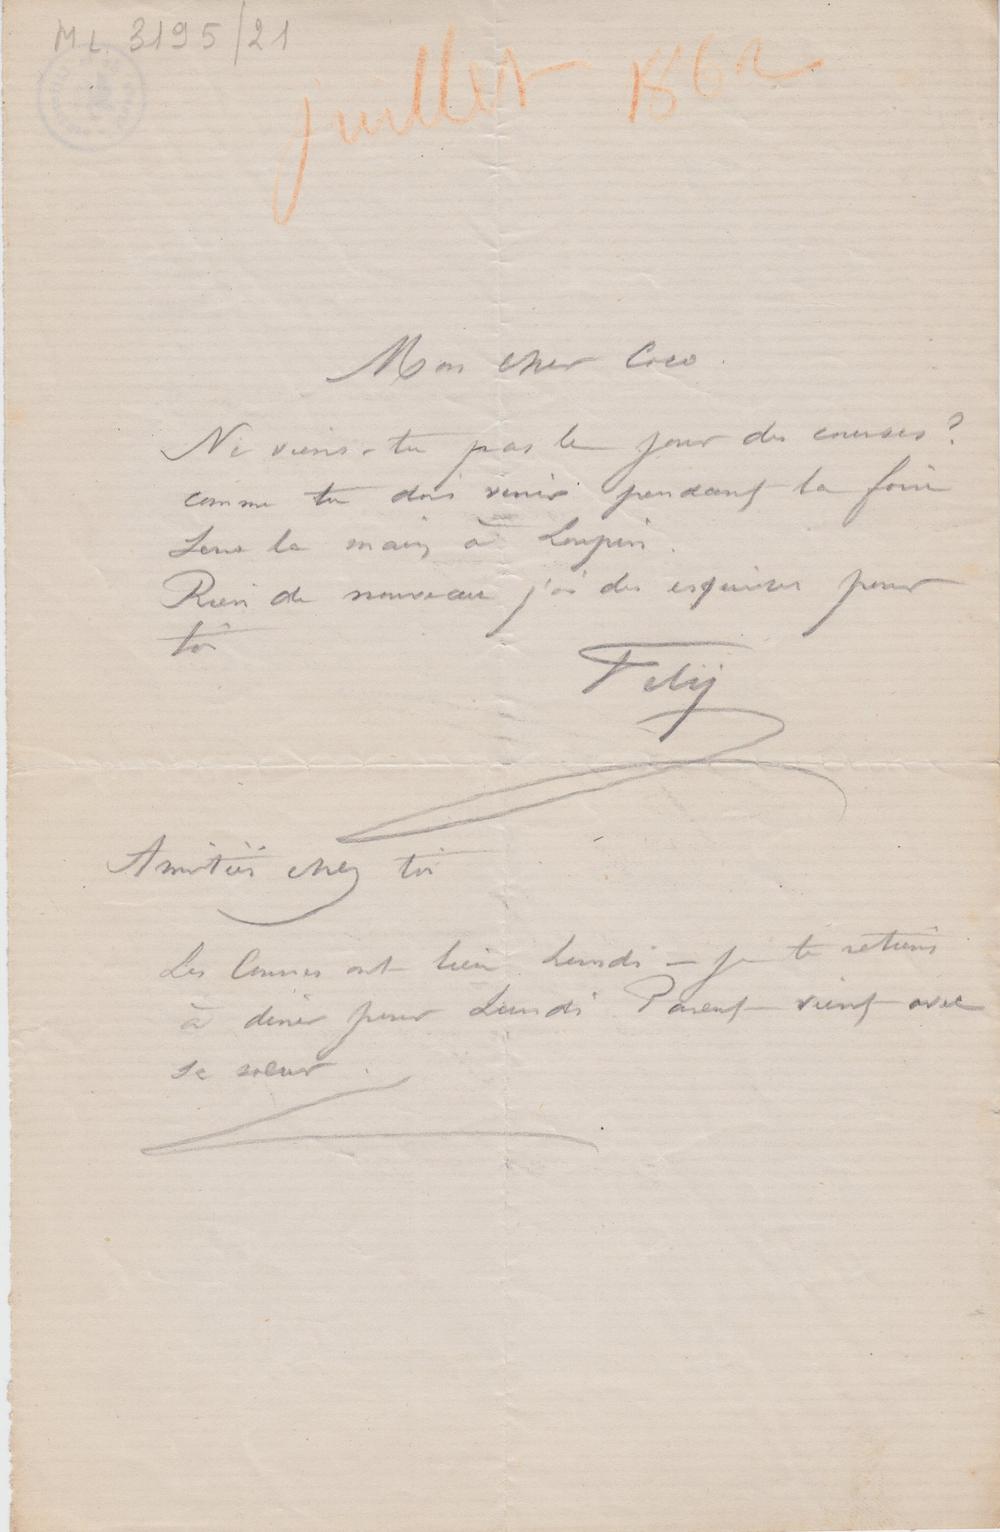 ML 3195/21
juillet 1862
Mon cher Coco.
Ne viens-tu pas le jour des courses?
comme tu dois venir pendant la foire
serre la main à Loupin.
Rien de nouveau j'ai des esquisses pour
toi
Fély
Amitiés chez toi
Les Courses ont lieu Lundi — je te retiens
à diner pour Lundi Parent vient avec
sa soeur.